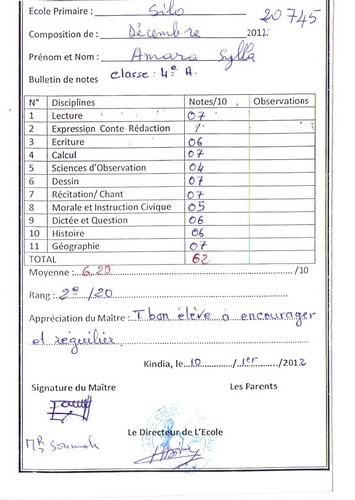 Ecole Primaire : Silo 20745
Composition de : Décembre 2012
Prénom et Nom : Amara Sylla
Bulletin de notes classe : 4e A.
N° Disciplines Notes/10 Observations
1 Lecture 07
2 Expression Conte Rédaction /
3 Ecriture 06
4 Calcul 07
5 Sciences d'Observation 04
6 Dessin 07
7 Récitation/ Chant 07
8 Morale et Instruction Civique 05
9 Dictée et Question 06
10 Histoire 06
11 Géographie 07
TOTAL 62
Moyenne : 6,20 /10
Rang : 2e /20
Appréciation du Maître : T bon élève à encourager
et régulier
Kindia, le 10 / 1er /2012
Signature du Maître Les Parents
Le Directeur de L'Ecole
Mr Soumah